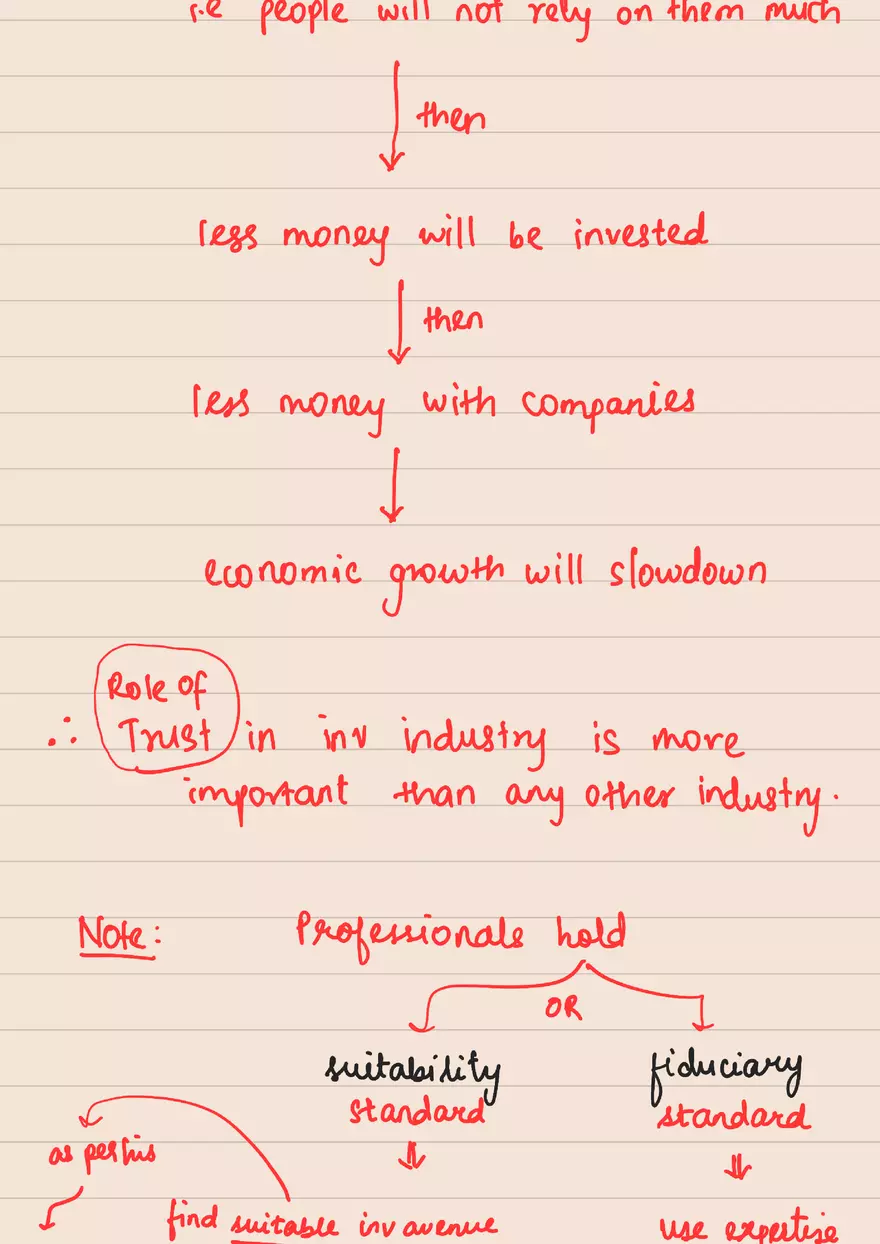 i.e people will not rely on them much
then
less money will be invested
then
less money with companies
economic growth will slowdown
Role of
∴ Trust in inv industry is more
important than any other industry.
Note: Professionals hold
OR
suitability fiduciary
standard standard
as per his
find suitable inv avenue use expertise